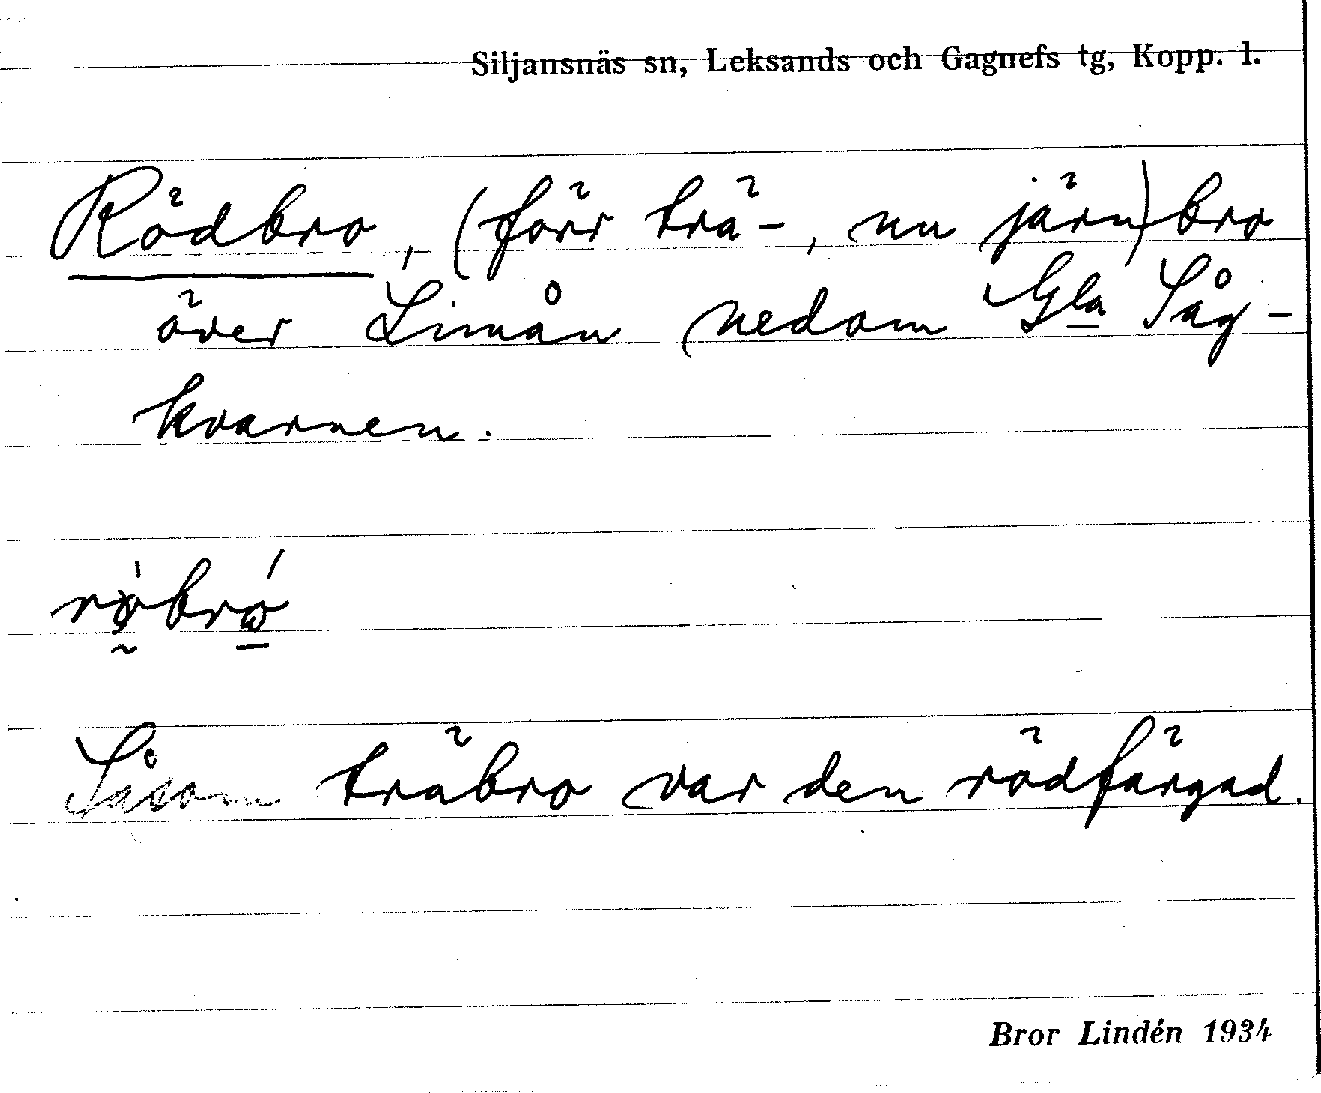 Siljansnäs sn, Leksands och Gagnefs tg, Kopp. l.
Rödbro, (förr trä-, nu järn)bro
över Limån nedom Gla Såg-
kvarnen.
Såsom träbro var den rödfärgad.
Bror Lindén 1934